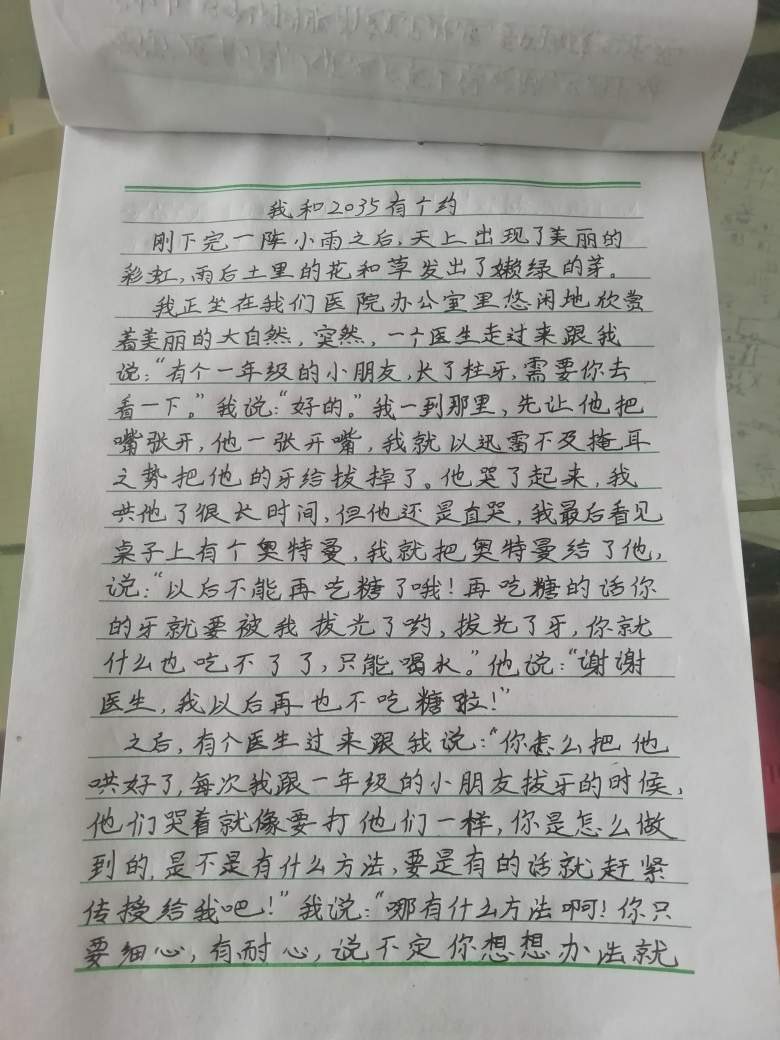 我和2035有个约
刚下完一阵小雨之后,天上出现了美丽的
彩虹,雨后土里的花和草发出了嫩绿的芽。
我正坐在我们医院办公室里悠闲地欣赏
着美丽的大自然,突然,一个医生走过来跟我
说:“有个一年级的小朋友,长了蛀牙,需要你去
看一下。”我说:“好的。”我一到那里,先让他把
嘴张开,他一张开嘴,我就以迅雷不及掩耳
之势把他的牙给拔掉了。他哭了起来,我
哄他了很长时间,但他还是直哭,我最后看见
桌子上有个奥特曼,我就把奥特曼给了他,
说:“以后不能再吃糖了哦!再吃糖的话你
的牙就要被我拔光了哟,拔光了牙,你就
什么也吃不了了,只能喝水。”他说:“谢谢
医生,我以后再也不吃糖啦!”
之后,有个医生过来跟我说:“你怎么把他
哄好了,每次我跟一年级的小朋友拔牙的时候,
他们哭着就像要打他们一样,你是怎么做
到的,是不是有什么方法,要是有的话就赶紧
传授给我吧!”我说:“哪有什么方法啊!你只
要细心,有耐心,说不定你想想办法就